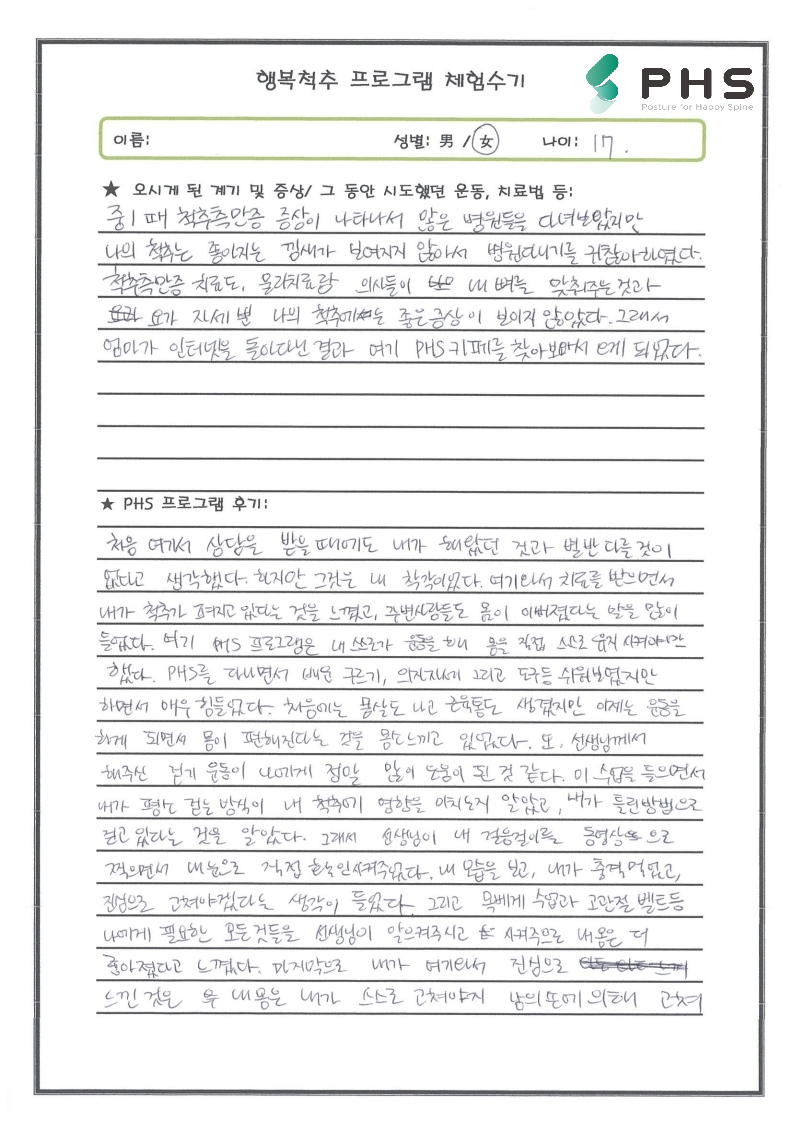 행복척추 프로그램 체험수기
PHS
Posture for Happy Spine
이름: 성별: 男 / 女 나이: 17.
★ 오시게 된 계기 및 증상/ 그 동안 시도했던 운동, 치료법 등:
중1 때 척추측만증 증상이 나타나서 많은 병원들을 다녀보았지만
나의 척추는 좋아지는 낌새가 보여지지 않아서 병원다니기를 귀찮아하였다.
척추측만증 치료도, 물리치료랑 의사들이 내 뼈를 맞춰주는것과
요가 자세 나의 척추에는 좋은증상이 보이지 않았다. 그래서
엄마가 인터넷을 돌아다닌 결과 여기 PHS카페를 찾아보아서 오게 되었다.
★ PHS 프로그램 후기:
처음 여기서 상담을 받을때에도 내가 해왔던 것과 별반 다를것이
없다고 생각했다. 하지만 그것은 내 착각이었다. 여기와서 치료를 받으면서
내가 척추가 펴지고 있다는 것을 느꼈고, 주변사람들도 몸이 이뻐졌다는 말을 많이
들었다. 여기 PHS 프로그램은 내 스스로가 운동을 해 몸을 직접 스스로 움직 시켜야만
했다. PHS를 다니면서 배운 구르기, 의자자세 그리고 도구등 쉬워보였지만
하면서 매우 힘들었다. 처음에는 몸살도 나고 근육통도 생겼지만 이제는 운동을
하게 되면서 몸이 편해진다는 것을 몸으로 느끼고 있었다. 또, 선생님께서
해주신 걷기 운동이 나에게 정말 많이 도움이 된 것 같다. 이 수업을 들으면서
내가 평소 걷는 방식이 내 척추에 영향을 미치는지 알았고, 내가 틀린방법으로
걷고 있다는 것을 알았다. 그래서 선생님이 내 걸음걸이를 동영상 으로
찍으면서 내눈으로 직접 확인시켜주었다. 내 모습을 보고, 내가 충격먹었고,
진심으로 고쳐야겠다는 생각이 들었다. 그리고 목베게 수업과 고관절 벨트등
나에게 필요한 모든것들을 선생님이 알으켜주시고 시켜주므로 내몸은 더
좋아졌다고 느꼈다. 마지막으로 내가 여기와서 진심으로
느낀 것은 내몸은 내가 스스로 고쳐야지 남의 에 의해 고쳐